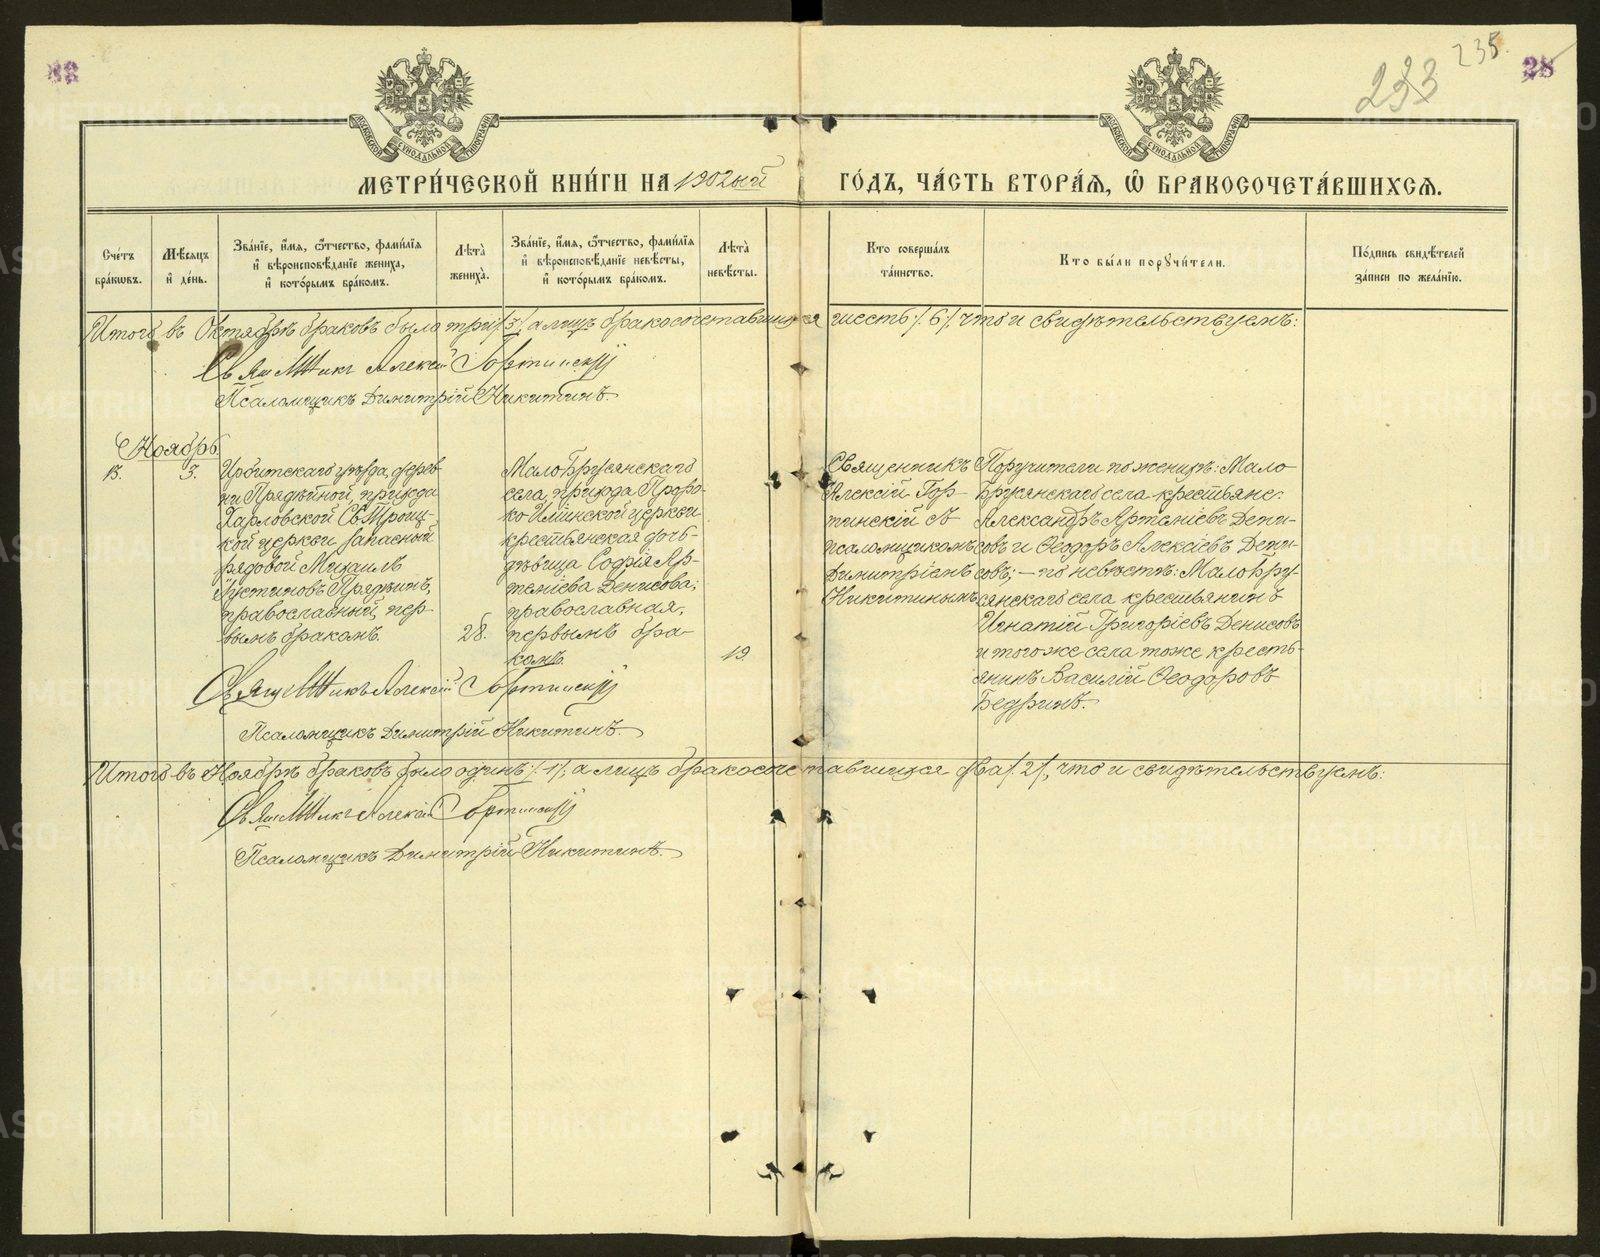 28
235
233
МОСКОВСКОЙ СѴНОДАЛЬНОЙ ТИПОГРАФІИ
МОСКОВСКОЙ СѴНОДАЛЬНОЙ ТИПОГРАФІИ
МЕТРИ́ЧЕСКОЙ КНИ́ГИ НА 1902ый ГО́ДЪ, ЧА́СТЬ ВТОРА́Я, Ѽ БРАКОСОЧЕТА́ВШИХСЯ.
Сче́тъ бра́кѡвъ.
Мѣ́сяцъ и҆ де́нь.
Зва́нїе, и҆́мя, ѻ҆́тчество, фами́лїя и҆ вѣроисповѣ́данїе жениха̀, и҆ кото́рымъ бра́комъ.
Лѣ́та жениха̀.
Зва́нїе, и҆́мя, ѻ҆́тчество, фами́лїя и҆ вѣроисповѣ́данїе невѣ́сты, и҆ кото́рымъ бра́комъ.
Лѣ́та невѣ́сты.
Кто соверша́лъ та́инство.
Кто бы́ли порꙋчи́тели.
По́дпись свидѣ́телей за́писи по жела́нїю.
Итого въ Октябрѣ браковъ было три /3/, а лицъ бракосочетавшихся шесть /6/, что и свидѣтельствуемъ:
Священникъ Алексій Гортинскій
Псаломщикъ Димитрій Никитинъ.
Ноябрь
13.
3.
Ирбитскаго уѣзда, дерев-
ни Прядѣиной, прихода
Харловской Св. Троиц-
кой церкви запасный
рядовой Михаилъ
Іустиновъ Прядѣинъ,
православный, пер-
вымъ бракомъ.
28.
Мало Брусянскаго
села, прихода Проро-
ко-Илiинской церкви
крестьянская дочь-
дѣвица Софія Ар-
теміева Денисова;
православная,
первымъ бра-
комъ.
19.
Священникъ
Алексій Гор-
тинскій съ
псаломщикомъ
Димитріемъ
Никитинымъ
Поручители по женихѣ: Мало
Брусянскаго села крестьяне:
Александръ Артеміевъ Дени-
совъ и Ѳеодоръ Алексіевъ Дени-
совъ; — по невѣстѣ: Мало Бру-
сянскаго села крестьянинъ
Игнатій Григоріевъ Денисовъ
и того же села тоже кресть-
янинъ Василій Ѳеодоровъ
Бедринъ.
Священникъ Алексій Гортинскій
Псаломщикъ Димитрій Никитинъ.
Итого въ Ноябрѣ браковъ было одинъ /1/, а лицъ бракосочетавшихся два /2/, что и свидѣтельствуемъ:
Священникъ Алексій Гортинскій
Псаломщикъ Димитрій Никитинъ.
METRIKI.GASO-URAL.RU